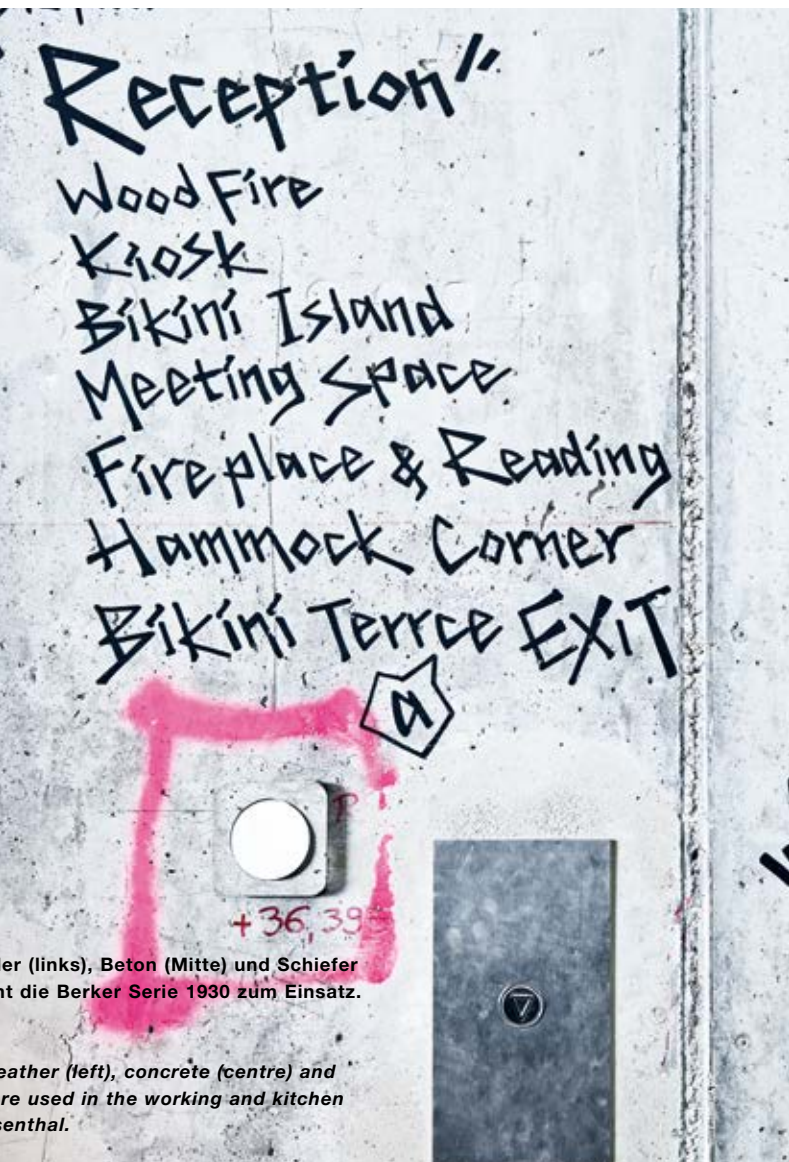 Reception"
Wood Fire
Kiosk
Bikini Island
Meeting Space
Fireplace & Reading
Hammock Corner
Bikini Terrce EXiT
a
(links), Beton (Mitte) und Schiefer
die Berker Serie 1930 zum Einsatz.
eather (left), concrete (centre) and
re used in the working and kitchen
senthal.